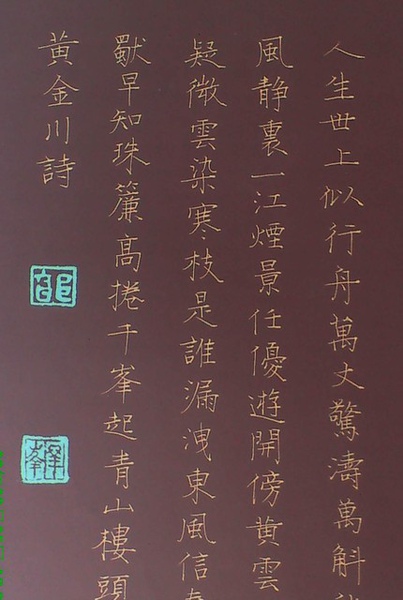 人生世上似行舟萬丈驚濤萬斛
風静裏一江煙景任優遊開傍黄雲
疑微雲染寒枝是誰漏洩東風信
獸早知珠簾高捲千峯起青山樓頭
黃金川詩